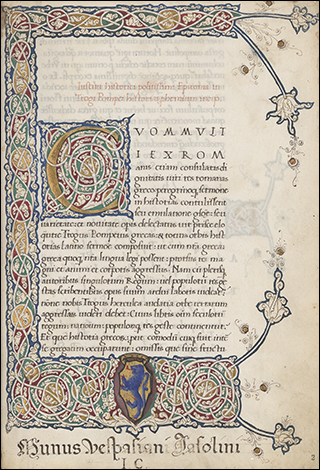 Iustini historici politissimi Epitoma in
Trogi Pompei historias prohemium incip.
CVOM MVLTI
IEX ROM
anis etiam consularis di
gnitatis uiri res romanas
greco peregrinoq; sermone
in historiam contulissent
seu emulatione glorie seu
uarietate et nouitate operis delectatus uir prisce elo
quentie Trogus Pompeius grecas & totius orbis histo
rias Latino sermone composuit: ut cum nostra grece
greca quoq; nostra lingua legi possent: prorsus rem ma
gni et animi et corporis aggressus. Nam cum plerisq;
autoribus singulorum Regum uel populorum res ge
stas scribentibus opus suum ardui laboris uideatur
nonne nobis Trogus herculea audacia orbe terrarum
aggressus uideri debet: Cuius libris omnium seculorum
regum nationum populorumq; res geste continentur.
Et que historici grecorum
se gregatim occupauerunt: omissis que sine fructu
Munus Vespasiani Iasolini
I C
2